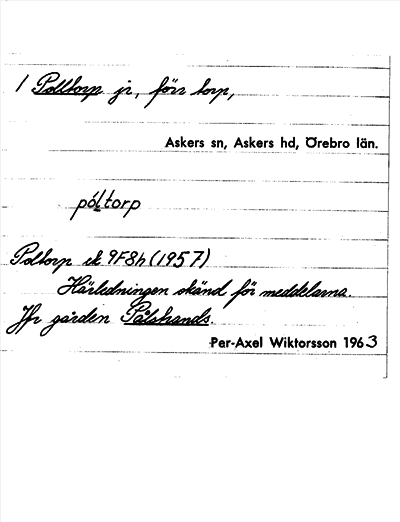 1 Poltorp jr, förr torp,
Askers sn, Askers hd, Örebro län.
póltorp
Poltorp ek 9F8h (1957)
Härledningen okänd för meddelarna.
Jfr gården Pålstrands.
Per-Axel Wiktorsson 1963